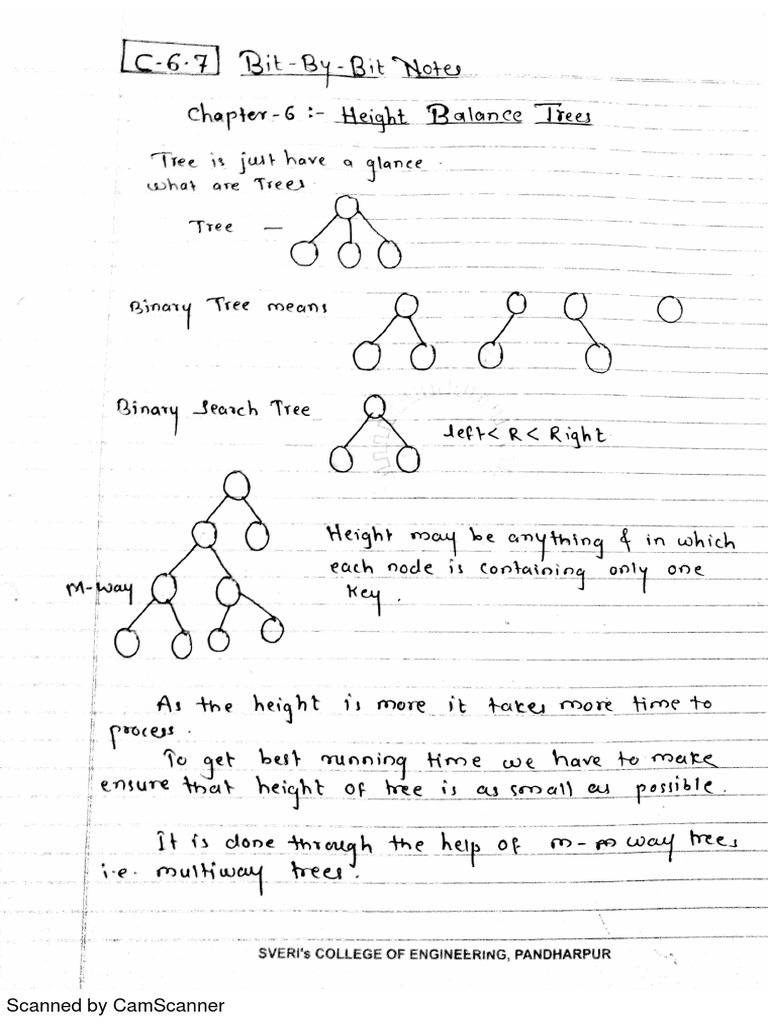 C-6.7 Bit-By-Bit Notes
Chapter-6 :- Height Balance Trees
Tree is just have a glance.
what are Trees.
Tree —
Binary Tree means
Binary Search Tree
left< R < Right
Height may be anything & in which
each node is containing only one
M-way
key.
As the height is more it takes more time to
process.
To get best running time we have to make
ensure that height of tree is as small as possible.
It is done through the help of m-m way trees
i.e. multiway trees.
SVERI's COLLEGE OF ENGINEERING, PANDHARPUR
Scanned by CamScanner